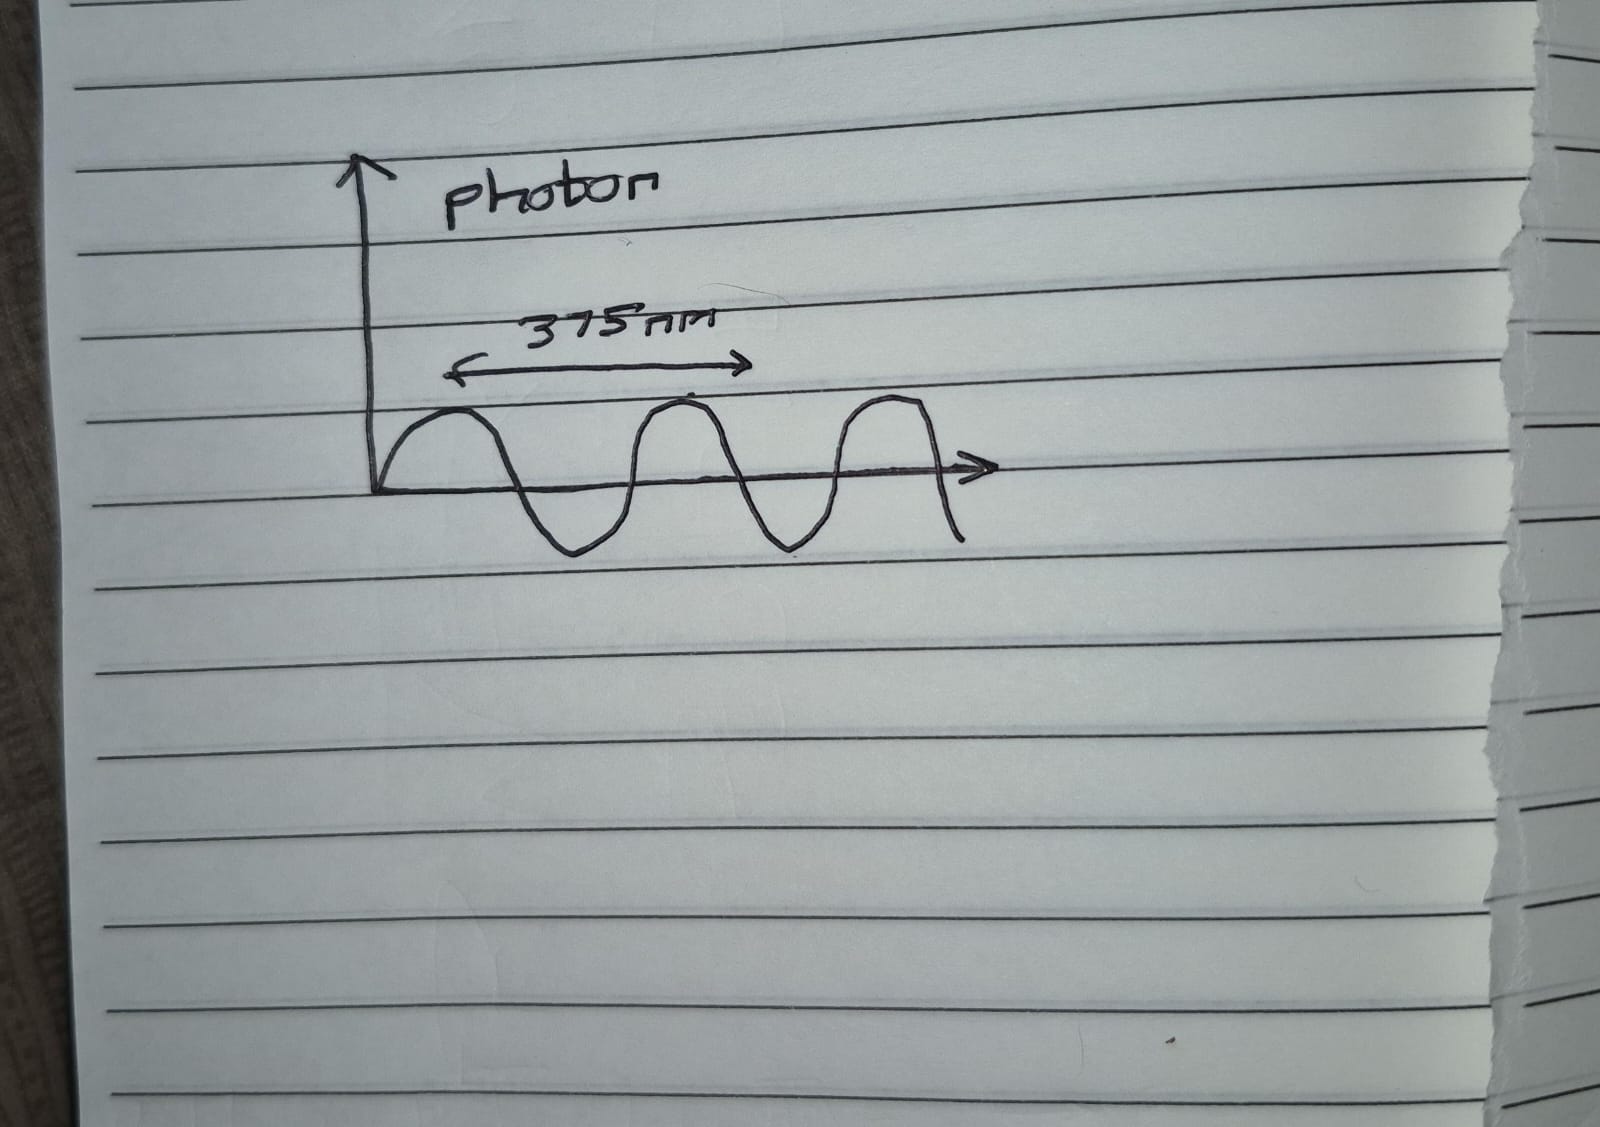 photon
375nm